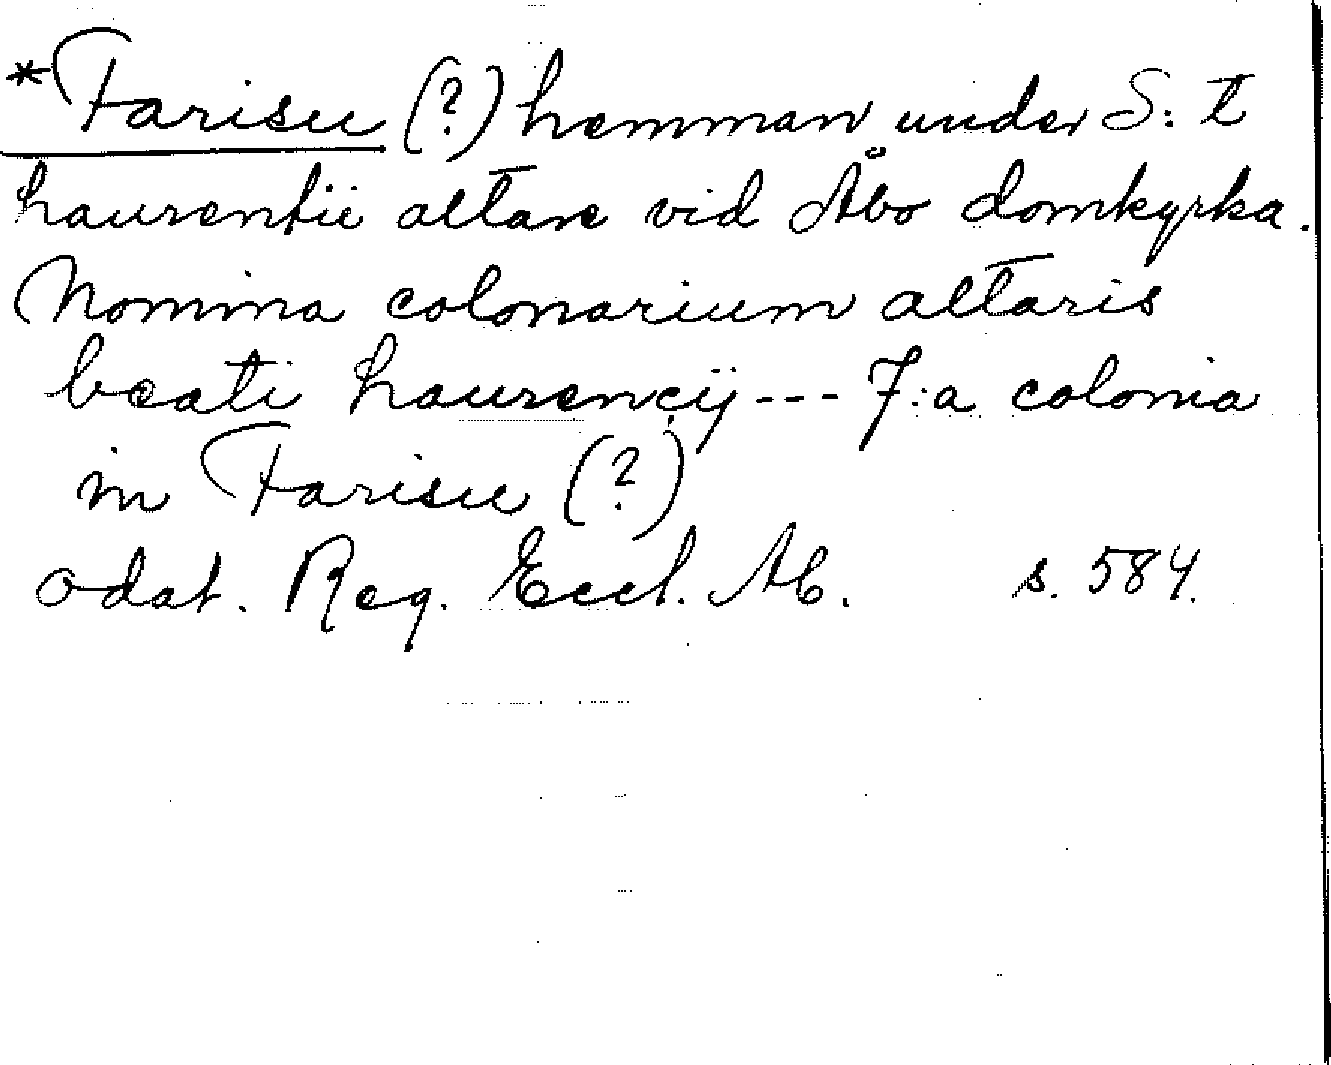 *Farisu (?) hemman under S:t
Laurentii altare vid Åbo domkyrka.
Nomina colonarium altaris
beati Laurencij --- J:a colonia
in Farisu (?)
odat. Reg. Eccl. Ab. s. 584.